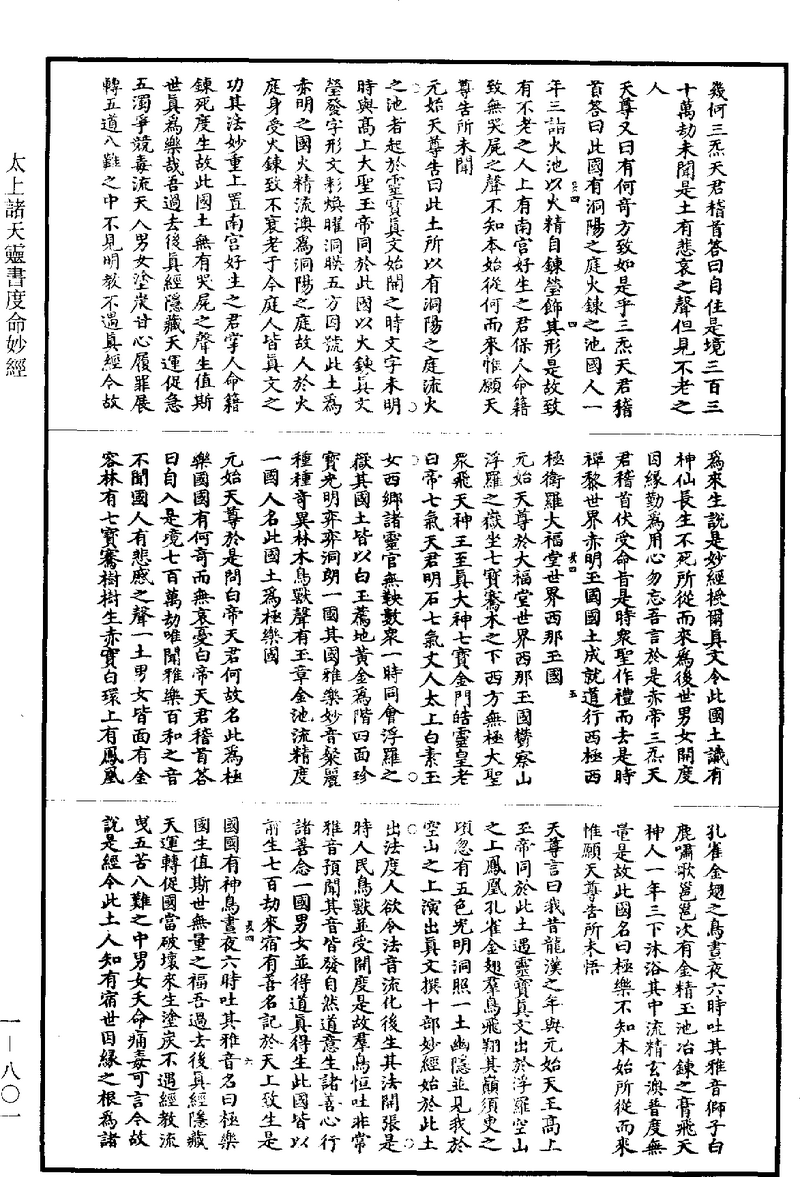 太上諸天靈書度命妙經
幾何三炁天君稽首答曰自住是境三百三
十萬劫未聞是土有悲哀之聲但見不老之
人
天尊又曰有何奇方致如是乎三炁天君稽
首答曰此國有洞陽之庭火鍊之池國人一
年三詣火池以火精自鍊瑩飾其形是故致
有不老之人上有南宮好生之君保人命籍
致無哭屍之聲不知本始從何而來惟願天
尊告所未聞
元始天尊告曰此土所以有洞陽之庭流火
之池者起於靈寶真文始開之時文字未明
時與高上大聖玉帝同於此國以火鍊真文
瑩發字形文彩煥曜洞暎五方因號此土爲
赤明之國火精流澳爲洞陽之庭故人於火
庭身受火鍊致不衰老于今庭人皆真文之
功其法妙重上置南宮好生之君掌人命籍
鍊死度生故此國土無有哭尸之聲生值斯
世眞爲樂哉吾過去後眞經隱藏天運促急
五濁爭競毒流天人男女塗炭甘心履罪展
轉五道八難之中不見明教不遇眞經今故
爲來生說是妙經授爾真文令此國土識有
神仙長生不死所從而來爲後世男女開度
因緣勤爲用心勿忘吾言於是赤帝三炁天
君稽首伏受命旨是時衆聖作禮而去是時
禪黎世界赤明玉國國土成就道行西極西
極衛羅大福堂世界西那玉國
元始天尊於大福堂世界西那玉國鬱察山
浮羅之嶽坐七寶騫木之下西方無極大聖
衆飛天神王至真大神七寶金門皓靈皇老
白帝七氣天君明石七氣丈人太上白素玉
女西鄉諸靈官無鞅數衆一時同會浮羅之
嶽其國土皆以白玉薦地黃金爲階四面珍
寶光明弈弈洞朗一國其國雅樂妙音粲麗
種種奇異林木鳥獸聲有玉章金池流精度
一國人名此國土爲極樂國
元始天尊於是問白帝天君何故名此爲極
樂國國有何奇而無哀憂白帝天君稽首答
曰自入是境七百萬劫唯聞雅樂百和之音
不聞國人有悲慼之聲一土男女皆面有金
容林有七寶騫樹樹生赤實白環上有鳳凰
孔雀金翅之鳥晝夜六時吐其雅音獅子白
鹿嘯歌邕邕次有金精玉池冶鍊之膏飛天
神人一年三下沐浴其中流精玄澳普度無
量是故此國名曰極樂不知本始所從而來
惟願天尊告所未悟
天尊言曰我昔龍漢之年與元始天王高上
玉帝同於此土遇靈寶眞文出於浮羅空山
之上鳳凰孔雀金翅羣鳥飛翔其巔須臾之
頃忽有五色光明洞照一土幽隱並見我於
空山之上演出眞文撰十部妙經始於此土
出法度人欲令法音流化後生其法開張是
時人民鳥獸並受開度是故羣鳥恒吐非常
雅音預聞其音皆發自然道意生諸善心行
諸善念一國男女並得道真得生此國皆以
前生七百劫來宿有善名記於天上致生是
國國有神鳥晝夜六時吐其雅音名曰極樂
國生值斯世無量之福吾過去後真經隱藏
天運轉促國當破壞來生塗炭不遇經教流
曳五苦八難之中男女夭命痛毒可言今故
說是經令此土人知有宿世因緣之根爲諸
一—八〇一